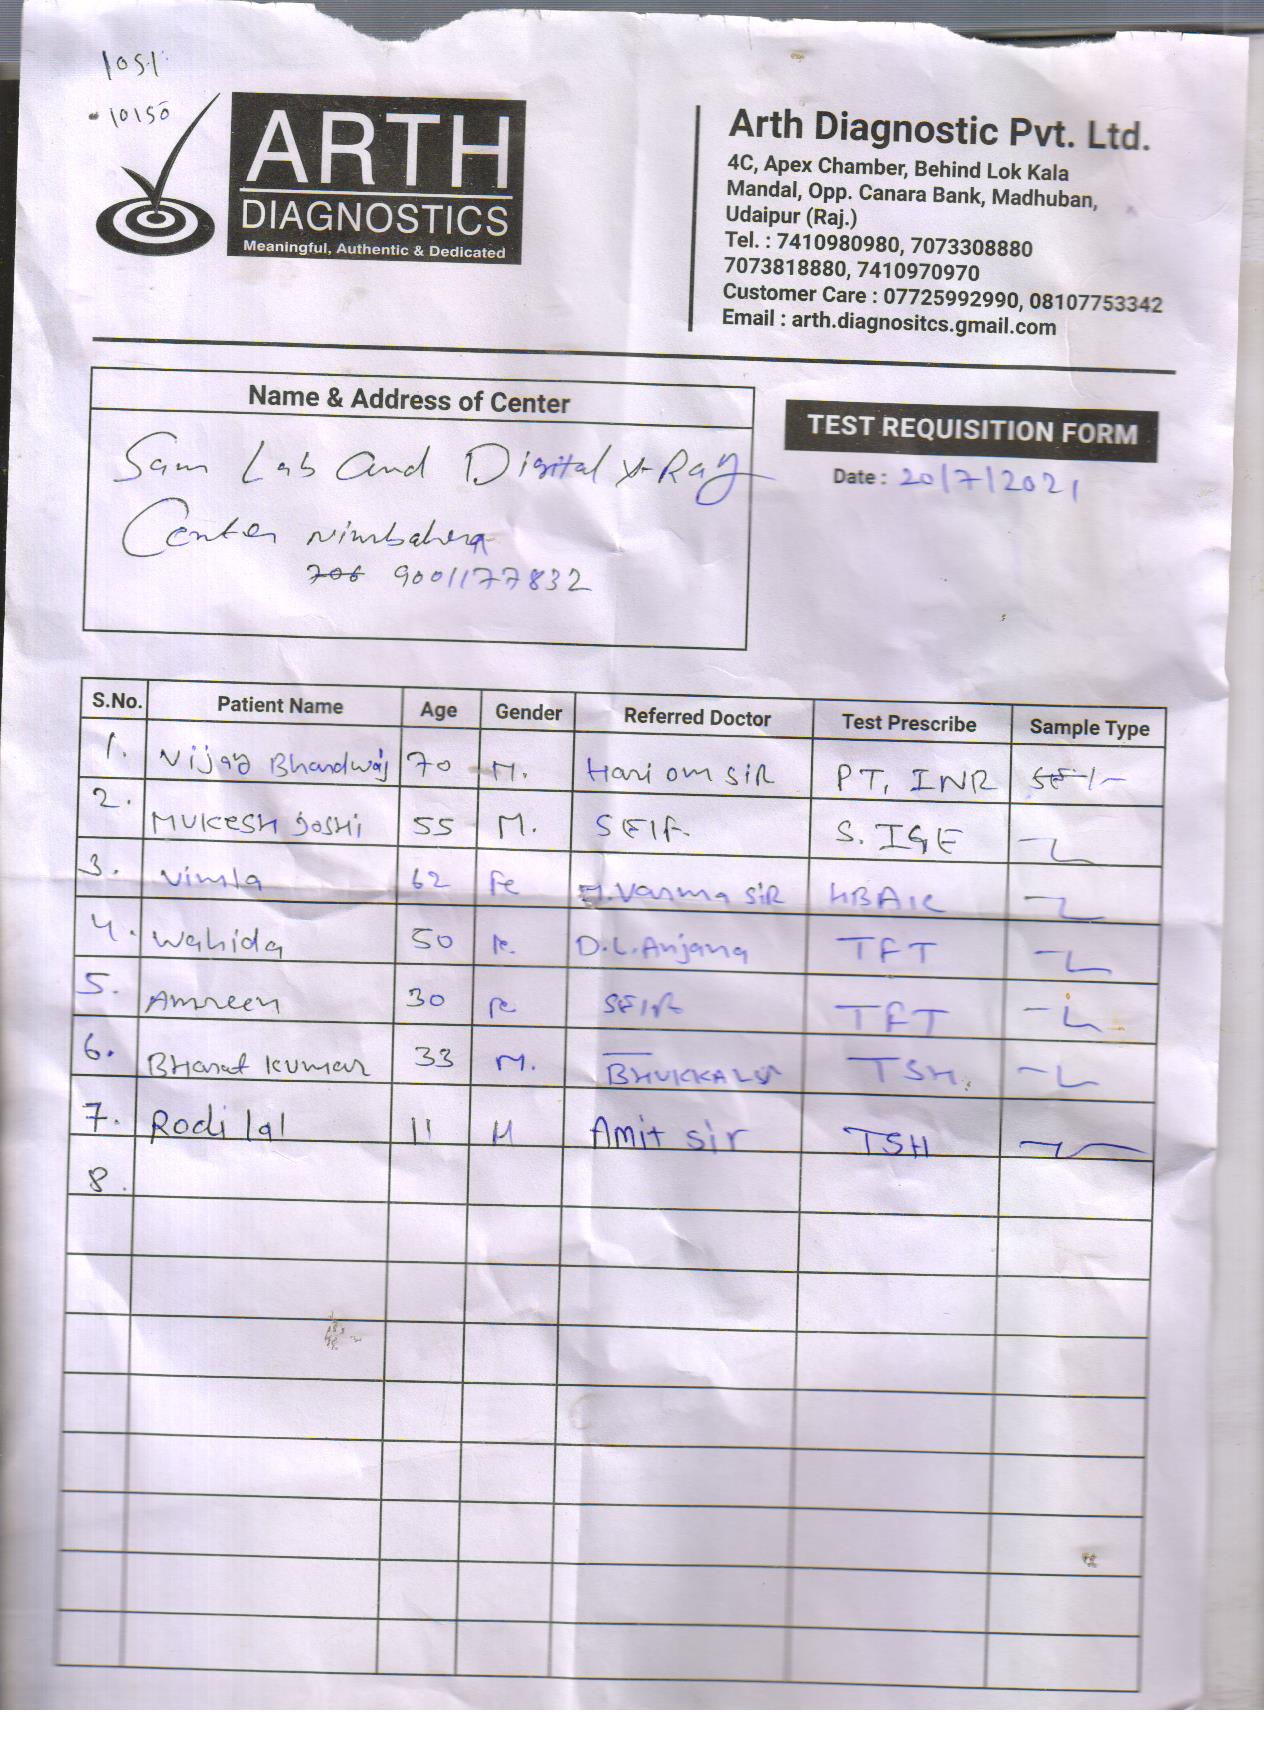 1051
10150
ARTH
DIAGNOSTICS
Meaningful, Authentic & Dedicated
Arth Diagnostic Pvt. Ltd.
4C, Apex Chamber, Behind Lok Kala
Mandal, Opp. Canara Bank, Madhuban,
Udaipur (Raj.)
Tel. : 7410980980, 7073308880
7073818880, 7410970970
Customer Care : 07725992990, 08107753342
Email : arth.diagnositcs.gmail.com
Name & Address of Center
Sam Lab and Digital X-Ray
Center Nimbahera
9001177832
TEST REQUISITION FORM
Date : 20/7/2021
S.No. Patient Name Age Gender Referred Doctor Test Prescribe Sample Type
1. Vijay Bhardwaj 70 M. Hari om SiR PT, INR
2. MUKESH JOSHI 55 M. SElF S. IGE
3. Vimla 62 Fe Varma SiR HBA1C
4. Wahida 50 Fe D.L.Anjana TFT
5. Amreen 30 Fe SElF TFT
6. BHarat Kumar 33 M. TSH
7. Rodi lal 11 M Amit sir TSH
8.